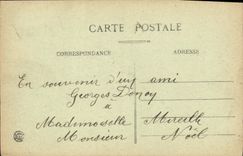 CARTE POSTALE
CORRESPONDANCE ADRESSE
En souvenir d'un ami
Georges
a
Mademoiselle Mireille
Monsieur Noël